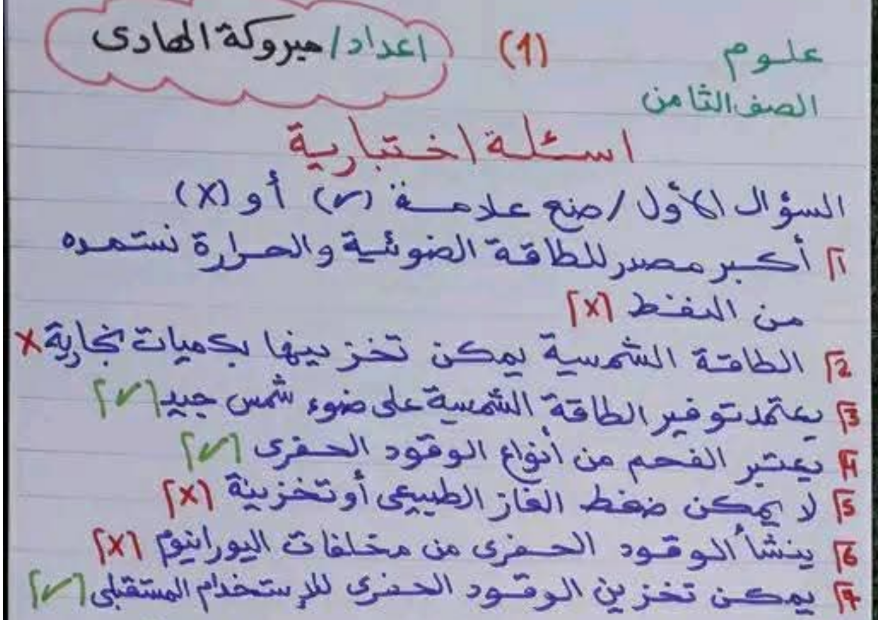 علوم (1) اعداد/مبروكة الهادى
الصف الثامن
اسئلة اختبارية
السؤال الأول/ضع علامة (✓) أو (X)
1 أكبر مصدر للطاقة الضوئية والحرارة نستمده
من النفط [X]
2 الطاقة الشمسية يمكن تخزينها بكميات تجارية X
3 يعتمد توفير الطاقة الشمسية على ضوء شمس جيد [✓]
4 يعتبر الفحم من أنواع الوقود الحفرى [✓]
5 لا يمكن ضغط الغاز الطبيعى أو تخزينة [X]
6 ينشأ الوقود الحفرى من مخلفات اليورانيوم [X]
7 يمكن تخزين الوقود الحفرى للإستخدام المستقبلى [✓]